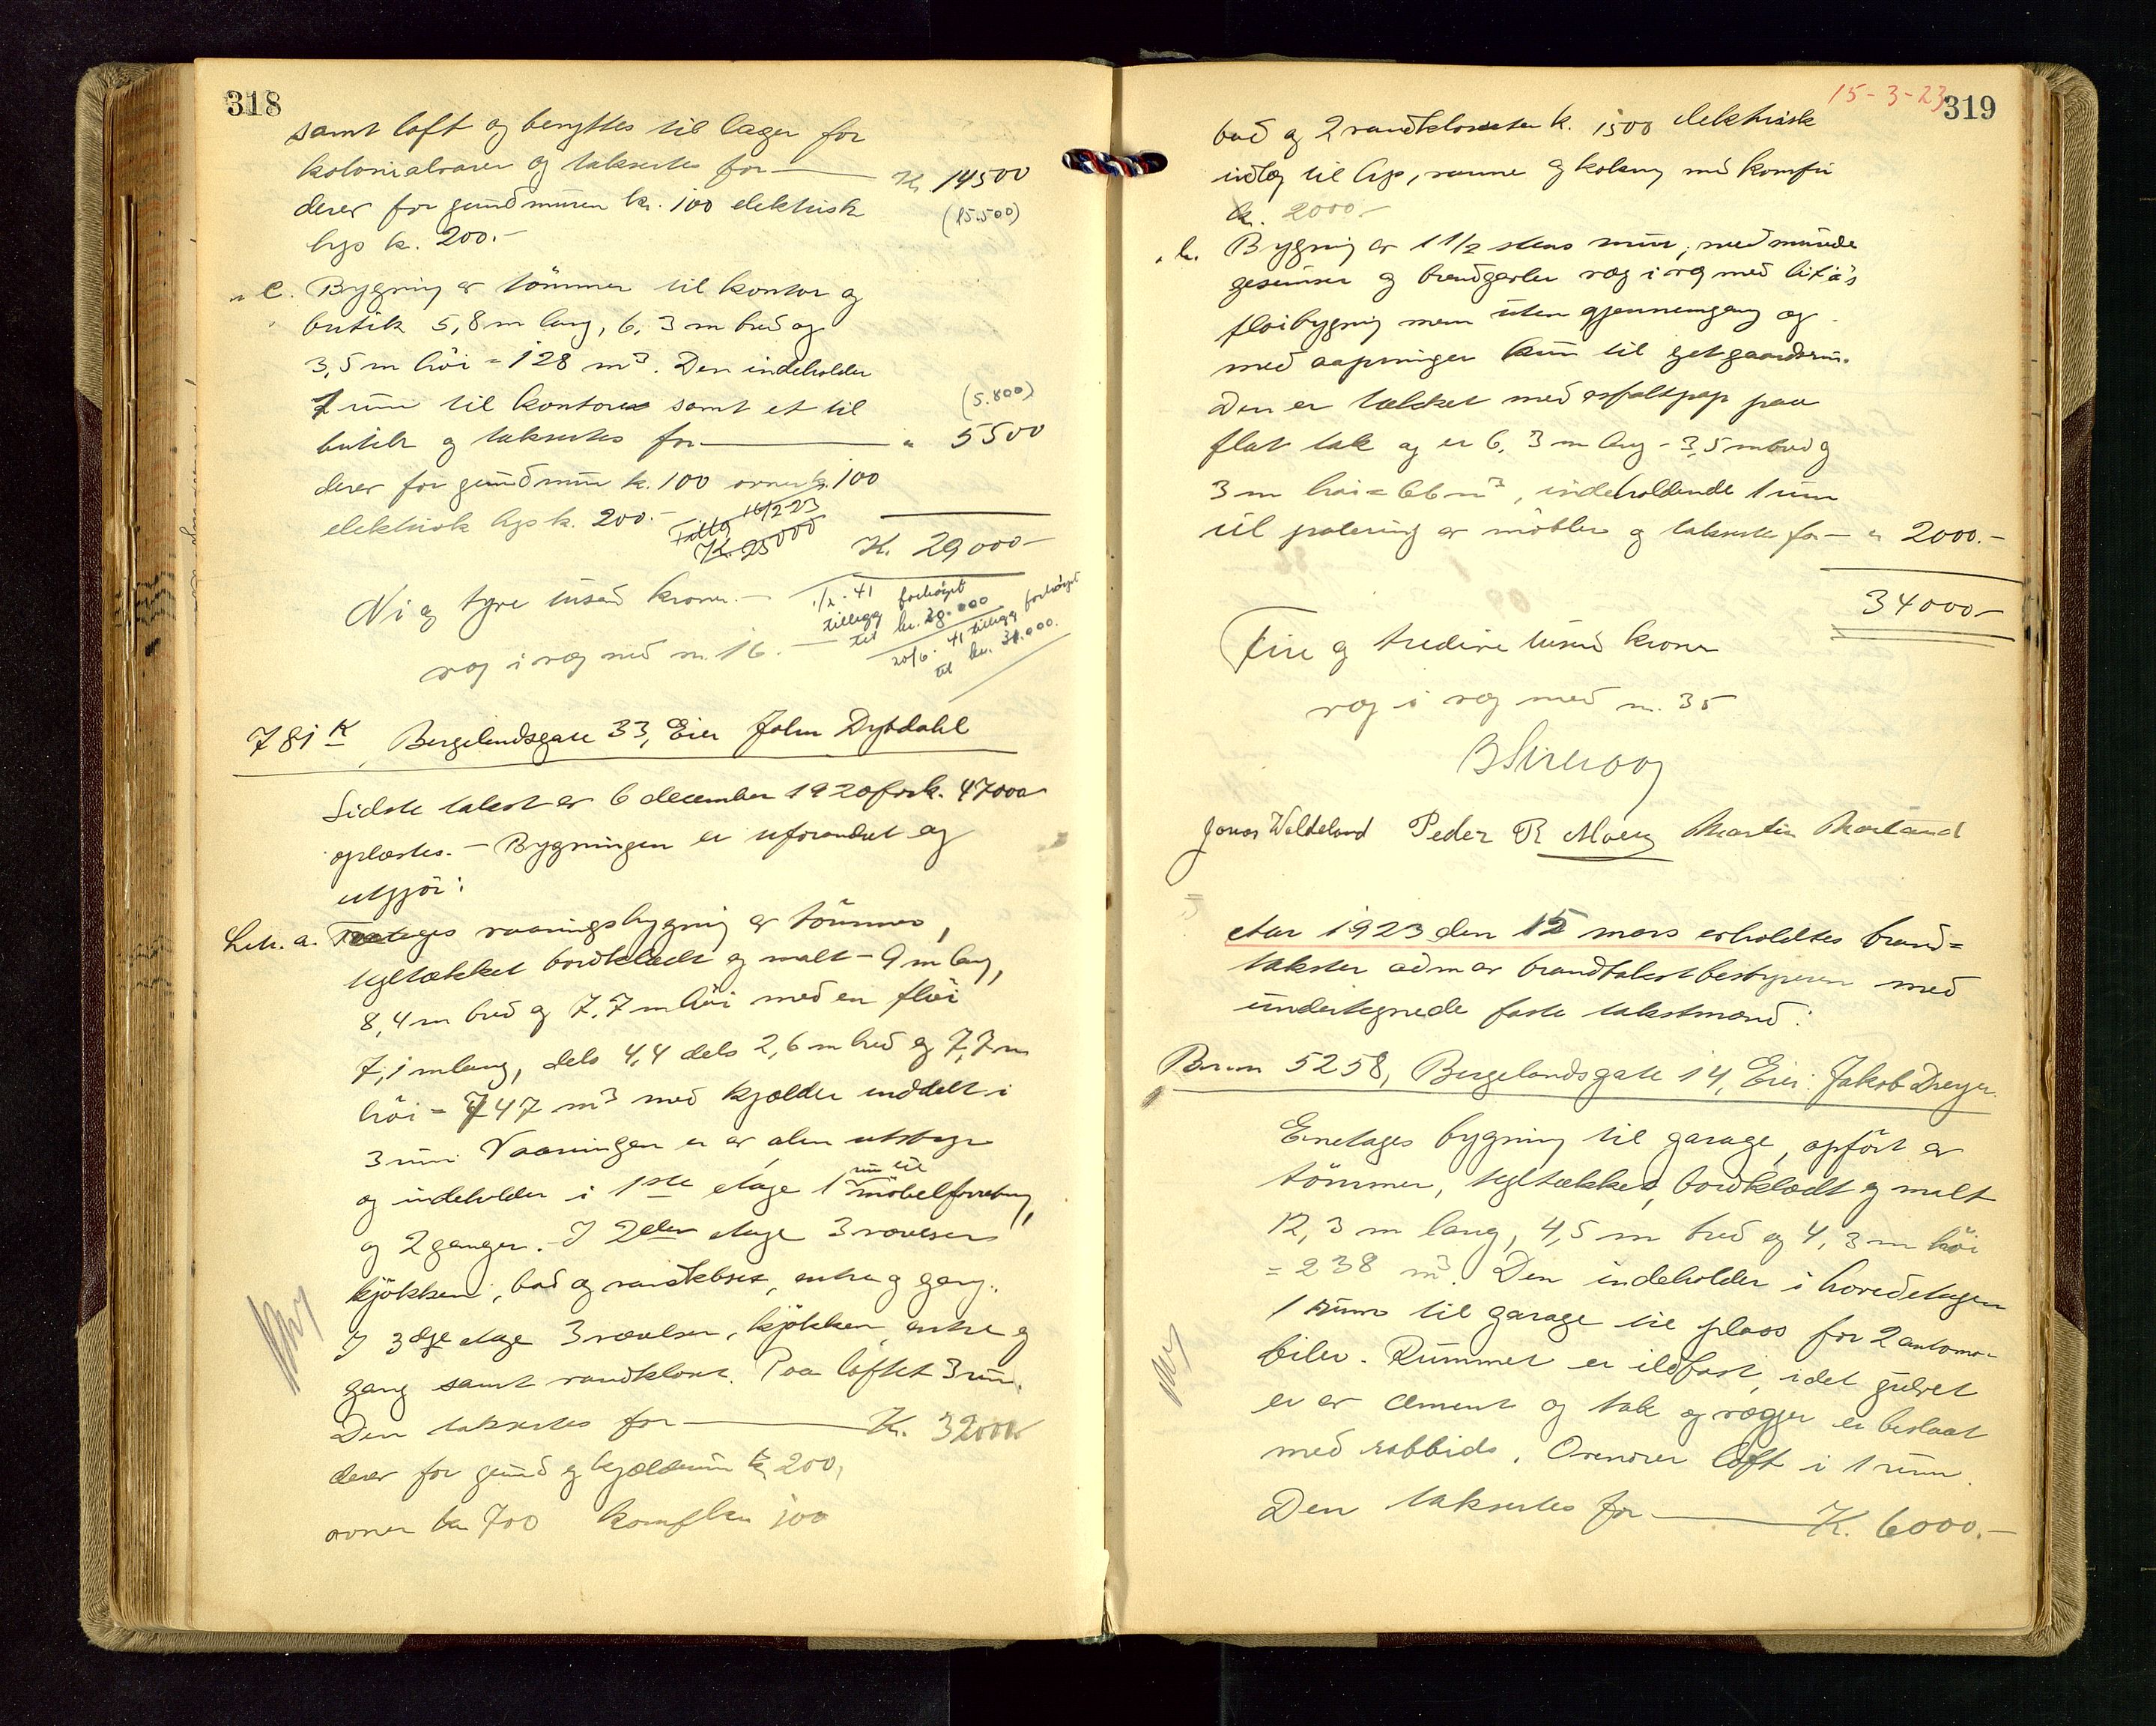 318
samt loft og benyttes til lager for
kolonialvarer og takseres for — K. 14500
derav for grundmuren kr. 100 elektrisk (15.500)
lys k. 200.-
" c. Bygning av tömmer til kontor og
butik 5,8 m lang, 6,3 m bred og
3,5 m höi = 128 m³. Den indeholder
1 rum til kontor samt et til (5.800)
butik og takseres for — " 5500
derav for grundmur k. 100 ovner k. 100
elektrisk lys k. 200.-
Tillg 16/2-23
K. 25000
K. 29000-
Ni og tyve tusend kroner.-
1/2-41 forhöiet
tillegg
til kr. 28.000
20/6-41 tillegg forhöiet
til kr. 31.000.
væg i væg med nr. 16. —
781 K, Bergelandsgate 33, Eier John Dybdahl
Sidste takst er 6 december 1920 for k. 47000
oplæstes. - Bygningen er uforandret og
utgjör:
Litr. a. etages vaaningsbygning av tömmer,
tegltækket bordklædt og malt - 9 m lang,
8,4 m bred og 7,7 m höi med en flöi
7,1 m lang, dels 4,4 dels 2,6 m bred og 7,7 m
höi = 747 m³ med kjælder inddelt i
3 rum. Vaaningen er av alm utstyr
og indeholder i 1ste etage 1 rum til möbelforretning,
og 2 ganger. I 2den etage 3 værelser
kjökken, bad og vandkloset, entre og gang.
I 3dje etage 3 værelser, kjökken, entre og
gang samt vandkloset. Paa loftet 3 rum.
Den takseres for — K. 32000
derav for grund og kjældermur k. 200,
ovner kr. 700 komf kr 100
15-3-23
319
bad og 2 vandkloseter k. 1500 elektrisk
indlæg til lys, varme og kokning med komfur
k. 2000.-
" b. Bygning av 1 1/2 stens mur, med murede
gesimser og brandgavler væg i væg med litr a's
flöibygning men uten gjennemgang og
med aapninger kun til eget gaardsrum.
Den er tækket med asfaltpap paa
flat tak og er 6,3 m lang - 3,5 m bred og
3 m höi = 66 m³, indeholdende 1 rum
til polering av möbler og takseres for — " 2000.-
34000-
Fire og tredive tusend kroner
væg i væg med nr. 35
Jonas Waldeland Peder R Moen Martin Marland
Aar 1923 den 15 mars avholdtes brand=
takster adm av brandtakstbestyreren med
undertegnede faste takstmænd:
Br.nr 5258, Bergelandsgate 14, Eier: Jakob Dreyer.
Enetages bygning til garage, opfört av
tömmer, tegltækket, bordklædt og malt
12,3 m lang, 4,5 m bred og 4,3 m höi
= 238 m³. Den indeholder i hovedetagen
1 rum til garage til plass for 2 automo-
biler. Rummet er ildfast, idet gulvet
er av cement og tak og vægger er beslaat
med rabbids. Ovenover loft i 1 rum.
Den takseres for — K. 6000.-